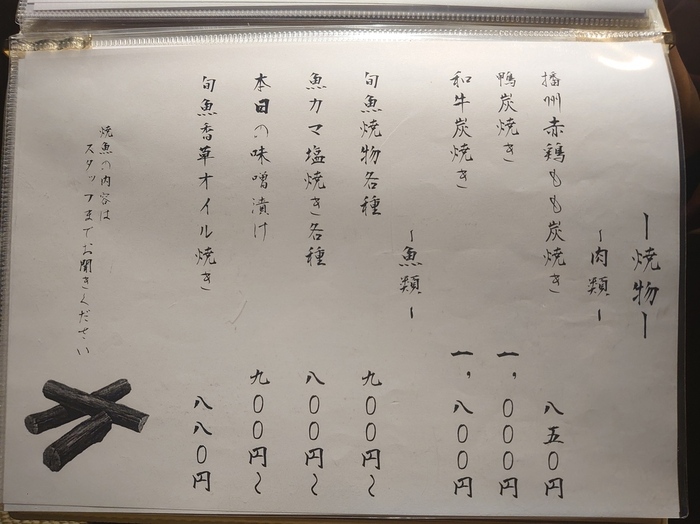 ー焼物ー
ー肉類ー
播州赤鶏もも炭焼き 八五〇円
鴨炭焼き 一,〇〇〇円
和牛炭焼き 一,八〇〇円
ー魚類ー
旬魚焼物各種 九〇〇円〜
魚カマ塩焼き各種 八〇〇円〜
本日の味噌漬け 九〇〇円〜
旬魚香草オイル焼き 八八〇円
焼魚の内容は
スタッフまでお聞きください